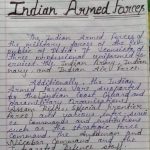 Indian Armed forces
The Indian Armed forces are
the military forces of the Re-
public of India. It consists of
three professional uniformed
services: the Indian Army, Indian
navy and Indian Air force.
Additionally, the Indian
Armed forces are supported
by the Indian Coast Guard and
paramilitary organisations
Assam Rifles, Special frontier
force) and various inter-service
commands and institutions
such as the strategic forces
command, the Andaman and
Nicobar command and
Defence staff